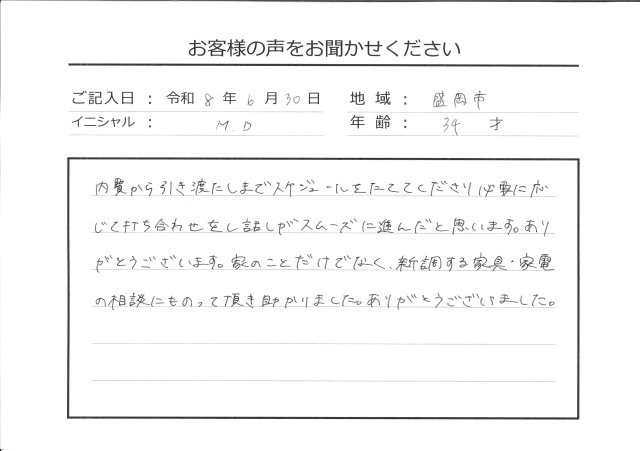 お客様の声をお聞かせください
ご記入日 : 令和 8 年 6 月 30 日 地 域 : 盛岡市
イニシャル : M.D 年 齢 : 34 才
内覧から引き渡しまでスケジュールをたててくださり必要に応
じて打ち合わせをし話しがスムーズに進んだと思います。あり
がとうございます。家のことだけでなく、新調する家具・家電
の相談にものって頂き助かりました。ありがとうございました。